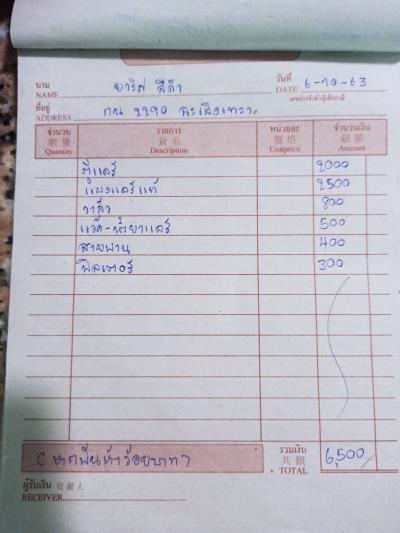 นาม
NAME ยาริส สีดำ
วันที่
DATE 6-10-63
เลขประจำตัวผู้เสียภาษี
ที่อยู่
ADDRESS กน 2290 ฉะเชิงเทรา
จำนวน รายการ หน่วยละ จำนวนเงิน
數量 貨名 價格 銀額
Quantity Description Unitprice Amount
ตู้แอร์ 2000
แผงแอร์แท้ 2500
วาล์ว 800
แว๊ค-น้ำยาแอร์ 500
สายพาน 400
ฟิลเตอร์ 300
(หกพันห้าร้อยบาท)
รวมเงิน
共銀
TOTAL 6,500
ผู้รับเงิน 收銀人
RECEIVER